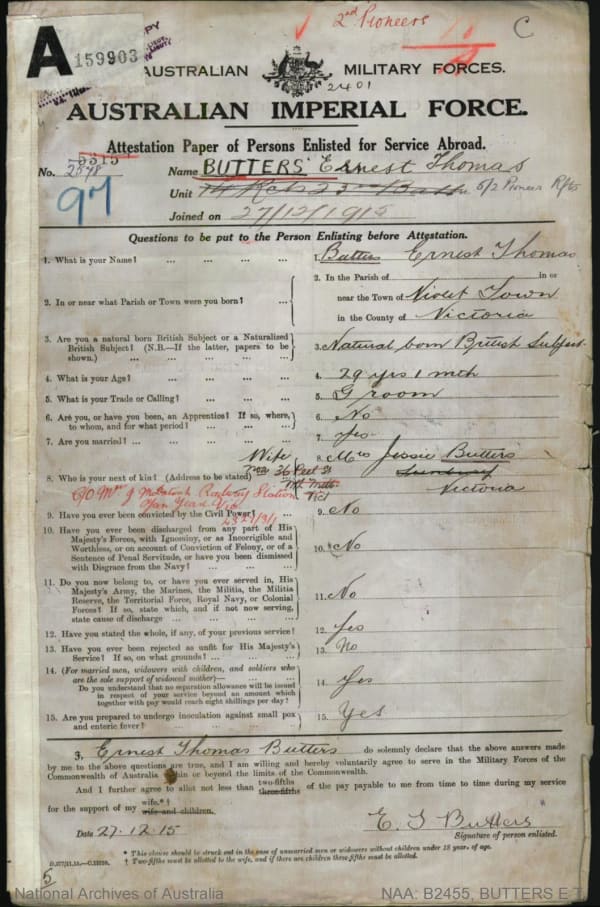 2nd Pioneers
C
A
159903
COPY
AUSTRALIAN MILITARY FORCES.
2401
AUSTRALIAN IMPERIAL FORCE.
Attestation Paper of Persons Enlisted for Service Abroad.
No. 5315 2578
97
Name BUTTERS Ernest Thomas
Unit 5/2 Pioneer Rfts
Joined on 27/12/1915
Questions to be put to the Person Enlisting before Attestation.
1. What is your Name? ... ... ... 1. Butters Ernest Thomas
2. In or near what Parish or Town were you born? ... 2. In the Parish of in or
near the Town of Violet Town
in the County of Victoria
3. Are you a natural born British Subject or a Naturalized
British Subject? (N.B.—If the latter, papers to be
shown.) 3. Natural born British Subject
4. What is your Age? 4. 29 yrs 1 mth
5. What is your Trade or Calling? 5. Groom
6. Are you, or have you been, an Apprentice? If so, where,
to whom, and for what period? 6. No
7. Are you married? 7. Yes
8. Who is your next of kin? (Address to be stated) Wife 8. Mrs Jessie Butters
Sunbury
Victoria
36 Peel St
C/O Mrs J McIntosh Railway Station
Yan Yean Vic
9. Have you ever been convicted by the Civil Power? 9. No
10. Have you ever been discharged from any part of His
Majesty's Forces, with Ignominy, or as Incorrigible and
Worthless, or on account of Conviction of Felony, or of a
Sentence of Penal Servitude, or have you been dismissed
with Disgrace from the Navy? 10. No
11. Do you now belong to, or have you ever served in, His
Majesty's Army, the Marines, the Militia, the Militia
Reserve, the Territorial Force, Royal Navy, or Colonial
Forces? If so, state which, and if not now serving,
state cause of discharge 11. No
12. Have you stated the whole, if any, of your previous service? 12. Yes
13. Have you ever been rejected as unfit for His Majesty's
Service? If so, on what grounds? 13. No
14. (For married men, widowers with children, and soldiers who
are the sole support of widowed mother)—
Do you understand that no separation allowance will be issued
in respect of your service beyond an amount which
together with pay would reach eight shillings per day? 14. Yes
15. Are you prepared to undergo inoculation against small pox
and enteric fever? 15. Yes
I, Ernest Thomas Butters do solemnly declare that the above answers made
by me to the above questions are true, and I am willing and hereby voluntarily agree to serve in the Military Forces of the
Commonwealth of Australia within or beyond the limits of the Commonwealth.
And I further agree to allot not less than two-fifths three-fifths of the pay payable to me from time to time during my service
for the support of my wife.*† wife and children.
Date 27.12.15 E. T Butters
Signature of person enlisted.
* This clause should be struck out in the case of unmarried men or widowers without children under 18 years of age.
† Two-fifths must be allotted to the wife, and if there are children three-fifths must be allotted.
5
National Archives of Australia
NAA: B2455, BUTTERS E T